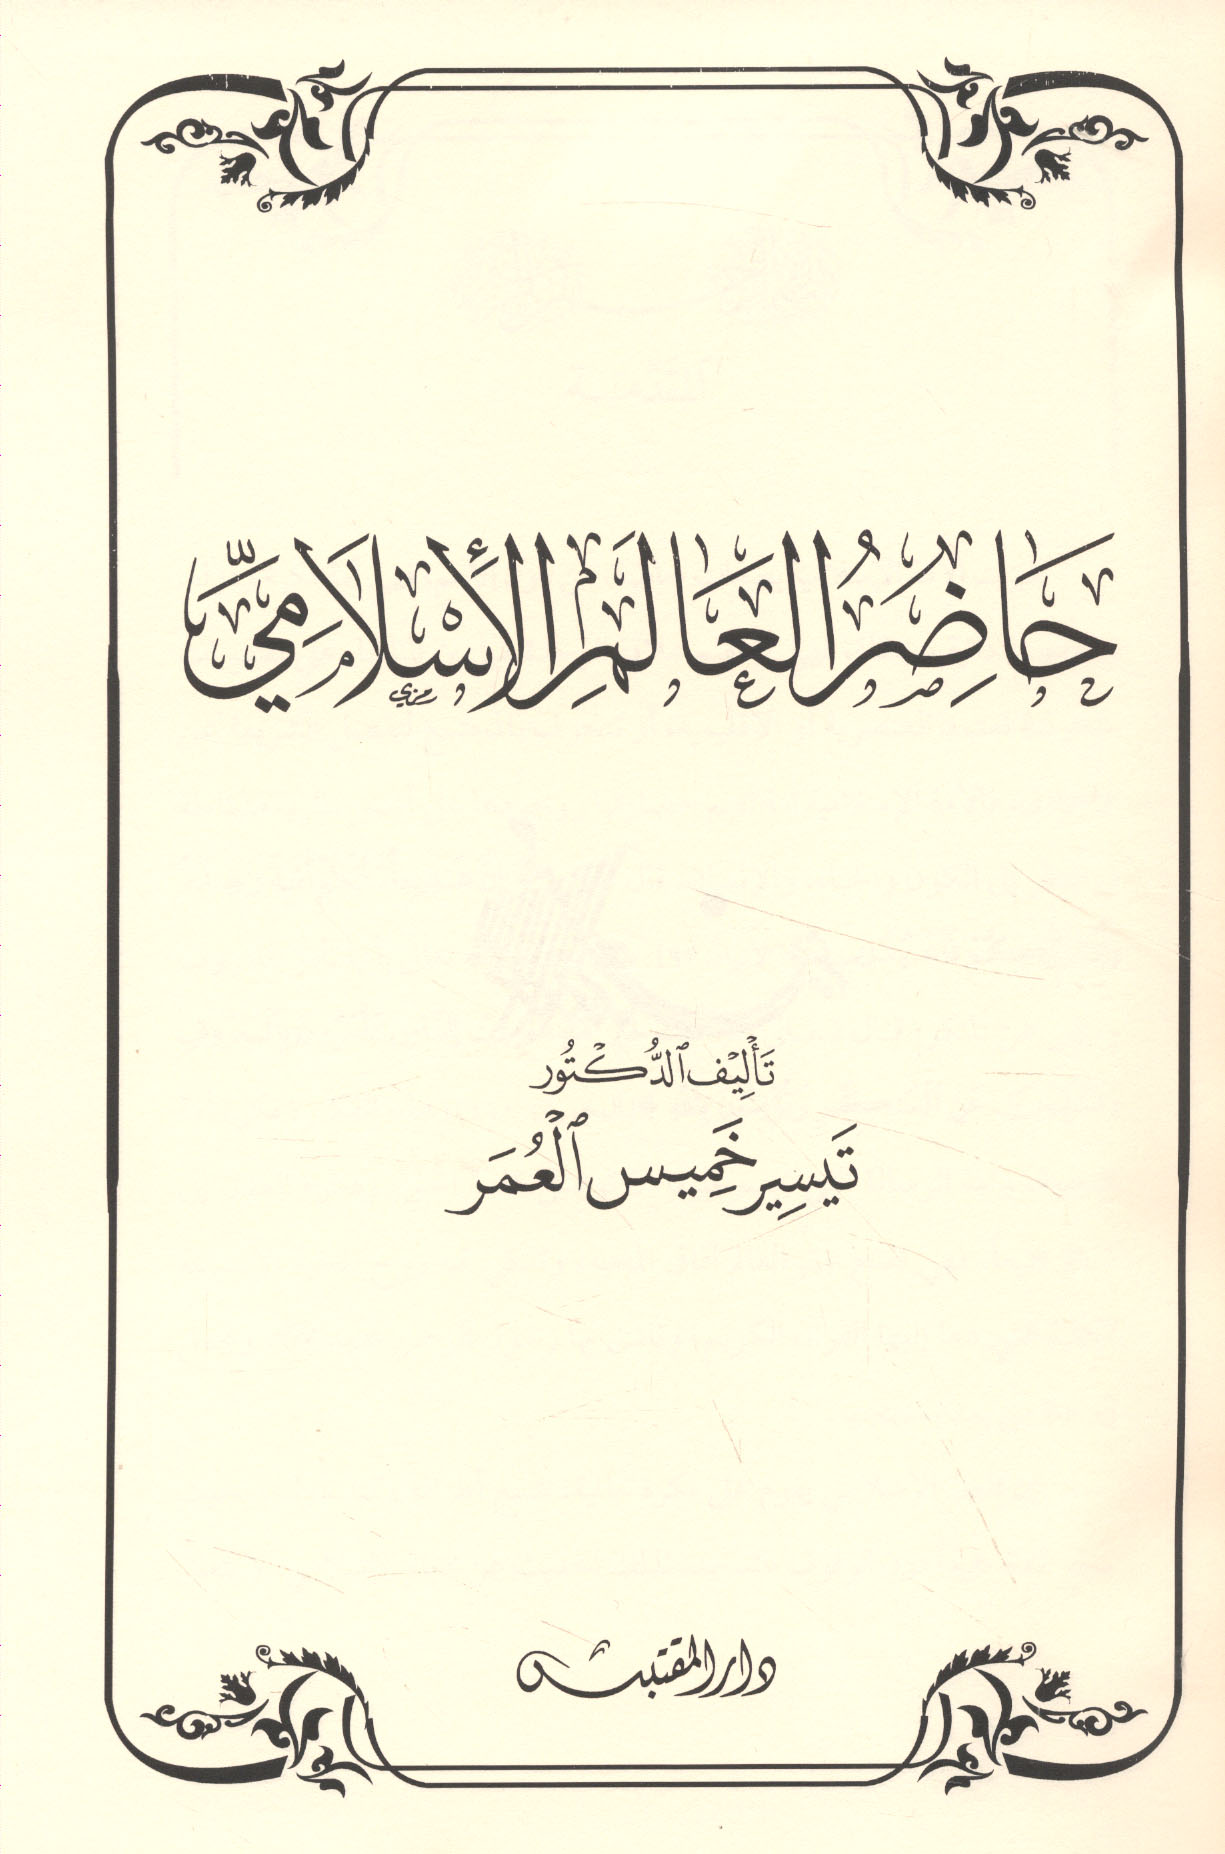 حَاضِرُ العَالَمِ الإِسْلَامِيِّ
تَأْلِيْف ٱلدُّكْتُور
تَيسِير خَمِيس ٱلْعُمَر
دار المقتبس